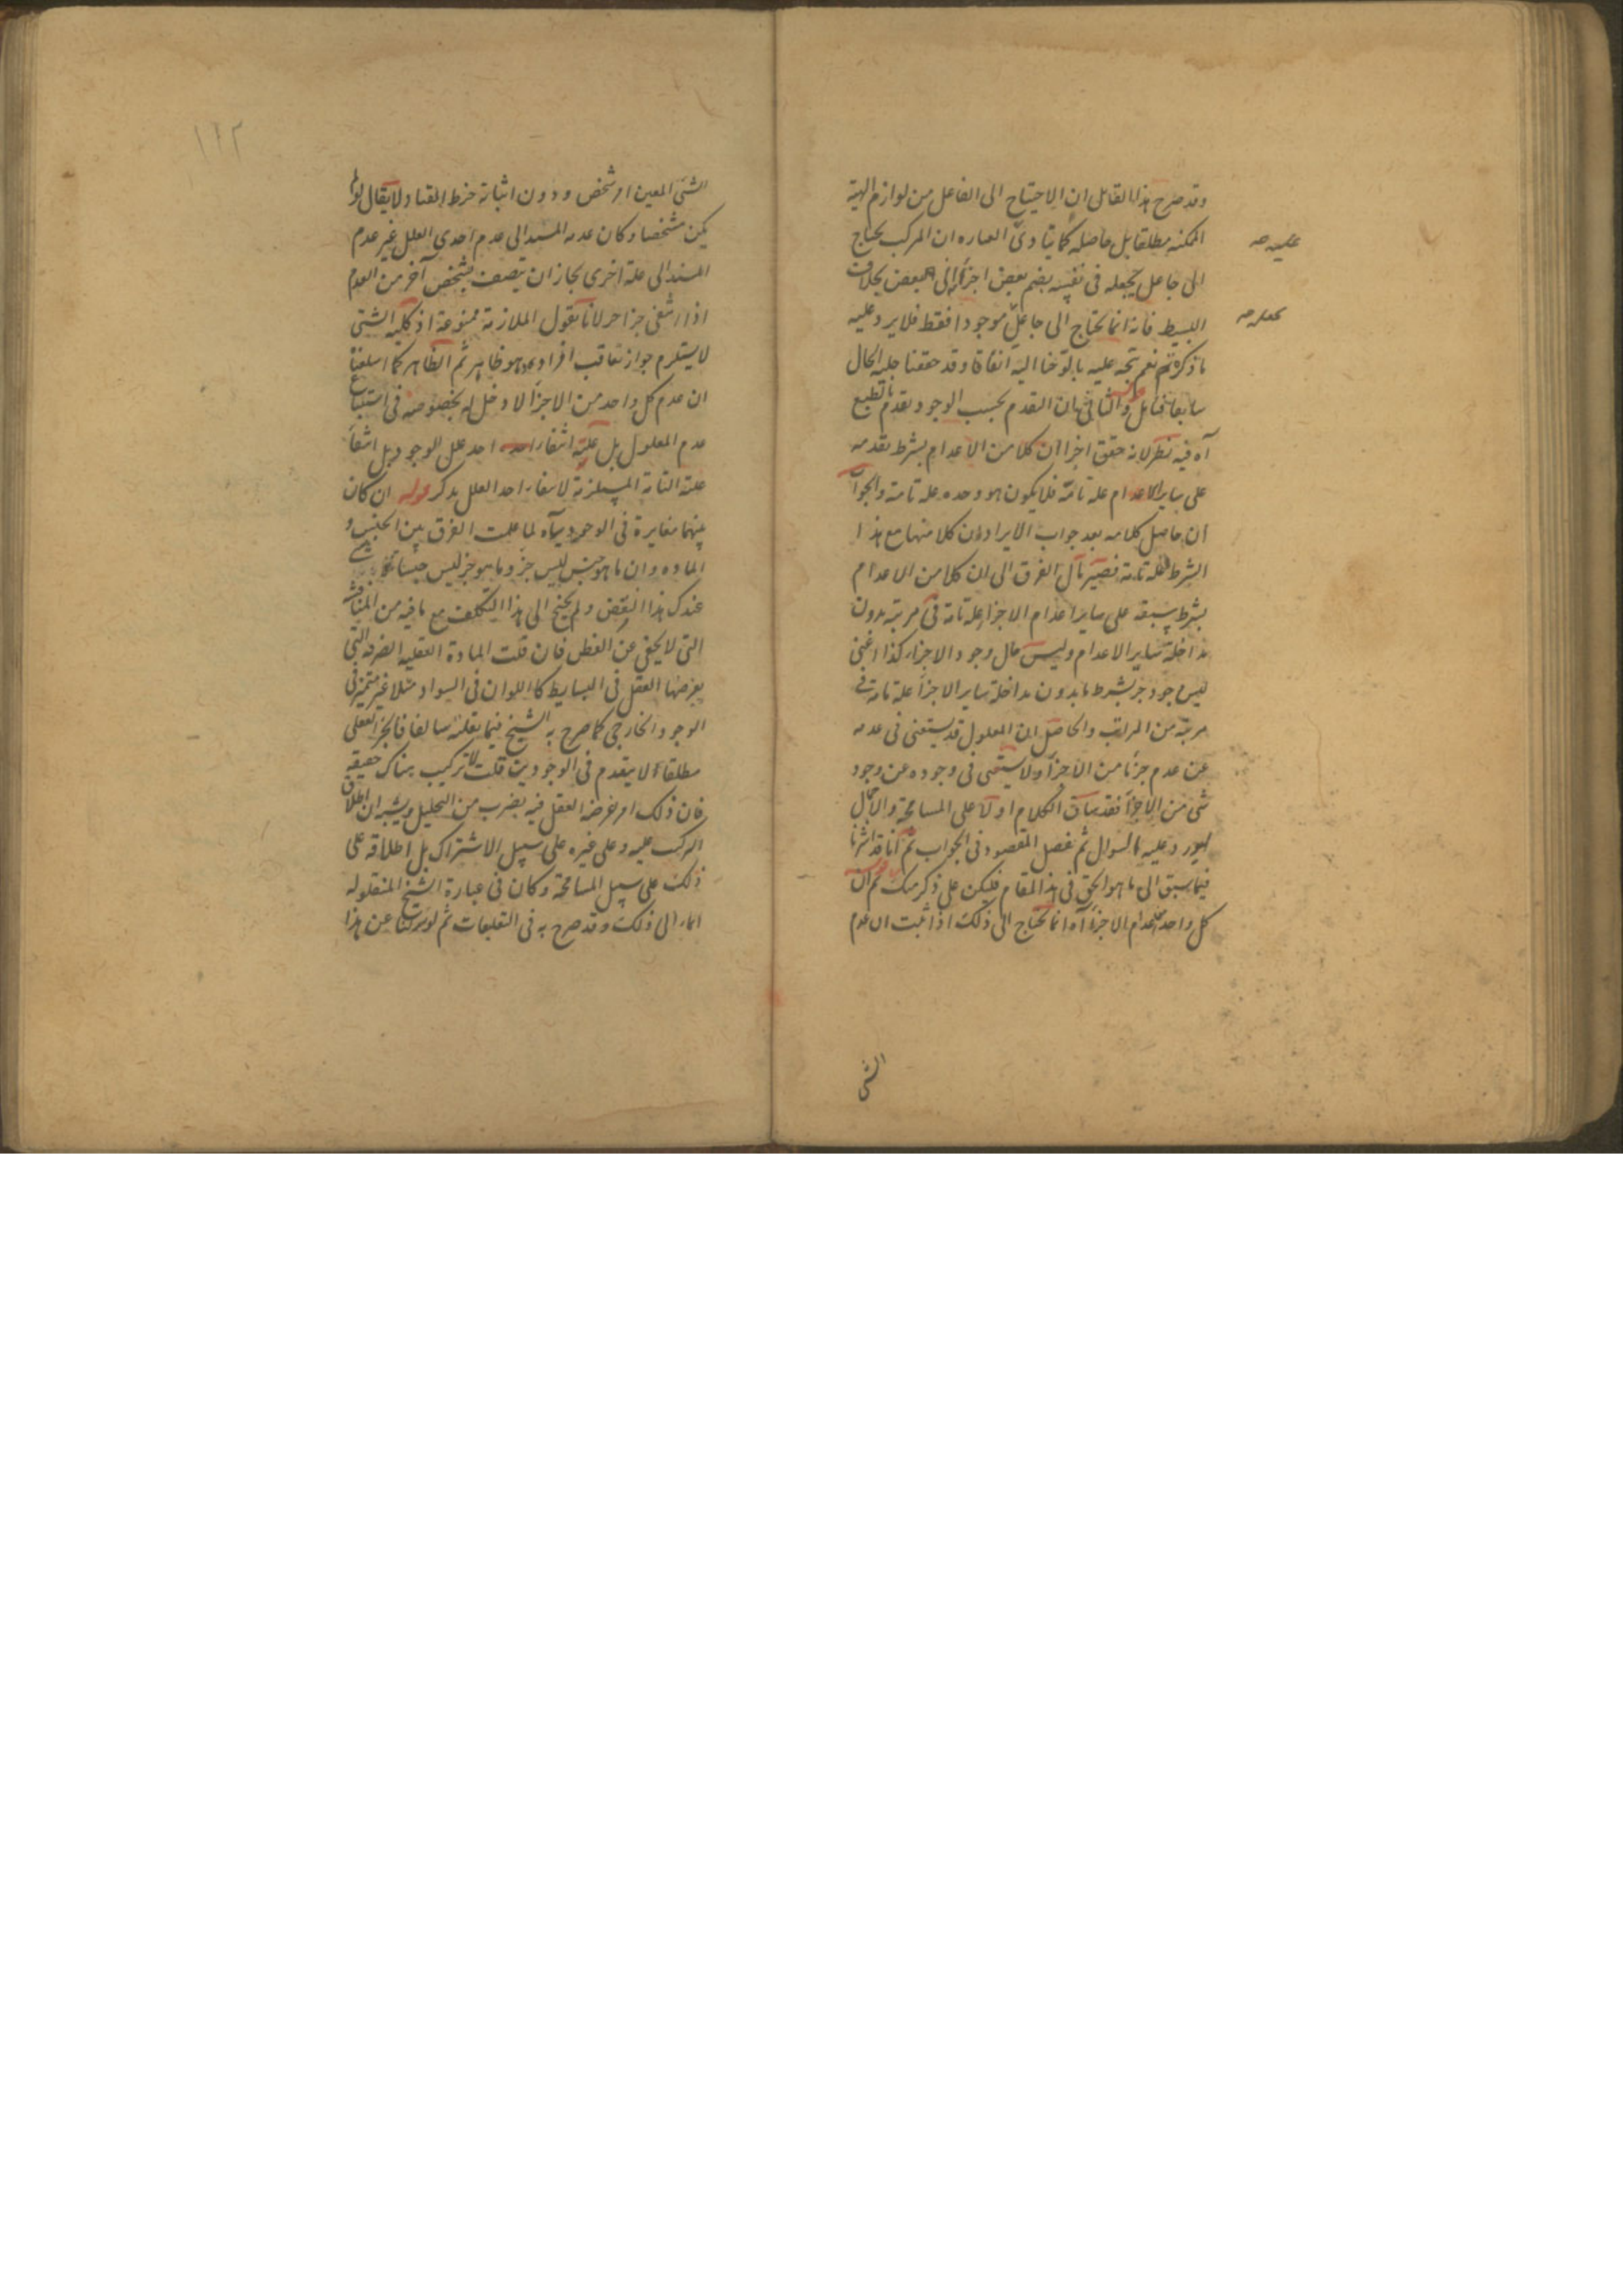 وقد صرح هذا القائل ان الاحتياج الى الفاعل من لوازم الهية
الممكنه مطلقا بل حاصله كما ينادى العباره ان المركب يحتاج
الى جاعل يجعله فى نفسه بضم بعض اجزائه الى البعض بخلاف
البسيط فانه انما يحتاج الى جاعل موجودا فقط فلا يرد عليه
ما ذكره ثم نعم يتجه عليه ما لوحنا اليه آنفا وقد حققنا جلية الحال
سابقا فتأمل والثانى ان التقدم بحسب الوجود تقدم بالطبع
آه فيه نظر لانه حقق اخرا ان كلا من الاعدام بشرط تقدمه
على ساير الاعدام علة تامة فلا يكون هو وحده علة تامة والجواب
ان حاصل كلامه بعد جواب الايراد ان كلا منها مع هذا
الشرط علة تامة فيصير مآل الفرق الى ان كلا من الاعدام
بشرط سبقه على ساير اعدام الاجزاء علة تامة فى مرتبة بدون
مداخلة ساير الاعدام وليس حال وجود الاجزاء كذا اعنى
ليس وجود جزء بشرط ما بدون مداخلة ساير الاجزاء علة تامة فى
مرتبة من المراتب والحاصل ان المعلول قد يستغنى فى عدمه
عن عدم جزء من الاجزاء ولا يستغنى فى وجوده عن وجود
شئ من الاجزاء فقد ساق الكلام اولا على المسامحة والاجمال
ليورد عليه السوال ثم فصل المقصود فى الجواب ثم انا قد اشرنا
فيما سبق الى ما هو الحق فى هذا المقام فليكن على ذكر منك ثم ان
كل واحد من اعدام الاجزاء آه انما يحتاج الى ذلك اذا ثبت ان عدم
الشئ
الشئ المعين امر شخص ودون اثباته خرط القتاد لا يقال لو لم
يكن مشخصا وكان عدمه المستند الى عدم احدى العلل غير عدم
المستند الى علة اخرى لجاز ان يتصف بشخص آخر من العدم
اذا انتفى جزء آخر لانا نقول الملازمة ممنوعة اذ كلية الشئ
لا يستلزم جواز تعاقب افراده وهو ظاهر ثم الظاهر كما اسلفنا
ان عدم كل واحد من الاجزاء لا دخل له بخصوصه فى استتباع
عدم المعلول بل علته انتفاء احد علل الوجود بل انتفاء
علته التامة المستلزمة لانتفاء احد العلل يدكر قوله ان كان
بينهما مغايرة فى الوجود آه لما علمت الفرق بين الجنس و
الماده وان ما هو جنس ليس جزء وما هو جزء ليس جنسا
عندك هذا النقض ولم يحتج الى هذا التكلف مع ما فيه من المناقشة
التى لا يخفى عن الفطن فان قلت المادة العقليه الصرفه التى
يفرضها العقل فى البسايط كاللون فى السواد مثلا غير متميز فى
الوجود الخارجى كما صرح به الشيخ فيما نقلته سالفا فالجزء العقلى
مطلقا لا يتقدم فى الوجودين قلت لا تركيب هناك حقيقه
فان ذلك امر فرضه العقل فيه بضرب من التحليل ويشبه ان اطلاق
المركب عليه وعلى غيره على سبيل الاشتراك بل اطلاقه على
ذلك على سبيل المسامحة وكان فى عبارة الشيخ المنقوله
ايماء الى ذلك وقد صرح به فى التعليقات ثم لو تركنا عن هذا